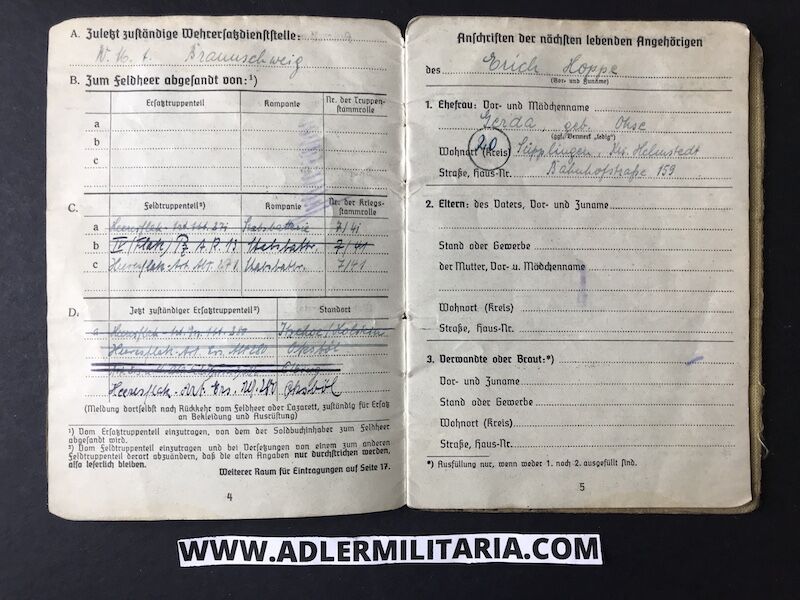 A. Zuletzt zuständige Wehrersatzdienststelle:
W. M. A. Braunschweig
B. Zum Feldheer abgesandt von:¹)
Ersatztruppenteil Kompanie Nr. der Truppenstammrolle
a
b
c
C. Feldtruppenteil²) Kompanie Nr. der Kriegsstammrolle
a Heeresflak-Art. Abt. 271 Stabsbatterie 7/41
b IV (Flak) Pz. A. R. 13 Stabsbattr. 7/41
c Heeresflak-Art. Abt. 271 Stabsbattr. 7/41
D. Jetzt zuständiger Ersatztruppenteil²) Standort
a Heeresflak-Art. Ers. Abt. 280 Itzehoe/Holstein
Heeresflak-Art. Ers. Abt. 280 Oksböl
Heeresflak-Art. Ers. Abt. 280 Oksböl
(Meldung dortselbst nach Rückkehr vom Feldheer oder Lazarett, zuständig für Ersatz
an Bekleidung und Ausrüstung)
¹) Vom Ersatztruppenteil einzutragen, von dem der Soldbuchinhaber zum Feldheer
abgesandt wird.
²) Vom Feldtruppenteil einzutragen und bei Versetzungen von einem zum anderen
Feldtruppenteil derart abzuändern, daß die alten Angaben nur durchstrichen werden,
also leserlich bleiben.
Weiterer Raum für Eintragungen auf Seite 17.
4
Anschriften der nächsten lebenden Angehörigen
des Erich Hoppe
(Vor- und Zuname)
1. Ehefrau: Vor- und Mädchenname
Gerda, geb. Ohse
(ggf. Vermerk „ledig")
20
Wohnort (Kreis) Süpplingen, Krs. Helmstedt
Straße, Haus-Nr. Bahnhofstraße 159
2. Eltern: des Vaters, Vor- und Zuname
Stand oder Gewerbe
der Mutter, Vor- u. Mädchenname
Wohnort (Kreis)
Straße, Haus-Nr.
3. Verwandte oder Braut:*)
Vor- und Zuname
Stand oder Gewerbe
Wohnort (Kreis)
Straße, Haus-Nr.
*) Ausfüllung nur, wenn weder 1. noch 2. ausgefüllt sind.
5
WWW.ADLERMILITARIA.COM